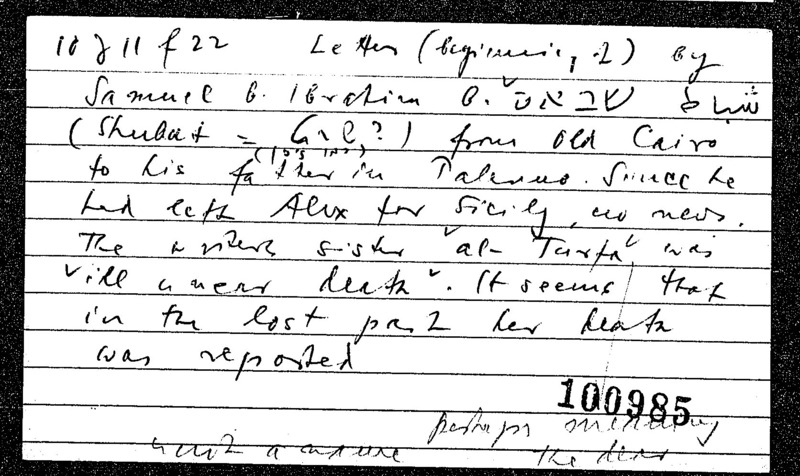 10 J 11 f 22 Letter (beginning, 2) by
Samuel b. Ibrahim b. שבאט شباط
(Shubait = ?) from Old Cairo
to his father in Palermo. Since he
had left Alex for Sicily, no news.
The writer's sister "al-Turfa" was
"ill & near death". It seems that
in the lost part her death
was reported
100985
perhaps meaning
not a name the dear